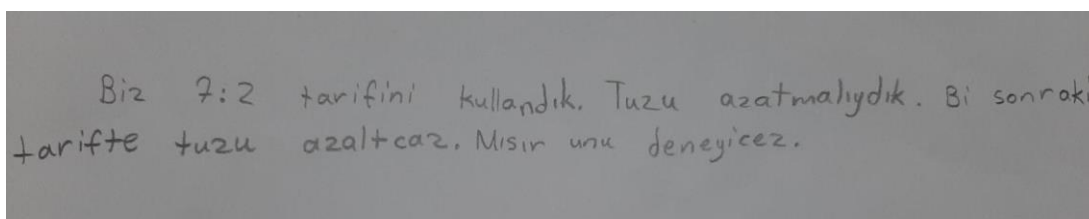 Biz 7:2 tarifini kullandık. Tuzu azatmalıydık. Bi sonraki
tarifte tuzu azaltcaz. Mısır unu deneyicez.